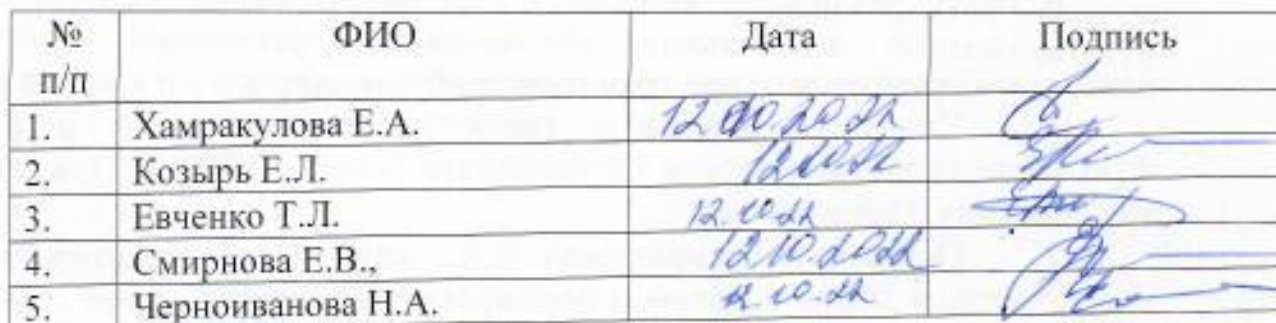 № п/п ФИО Дата Подпись
1. Хамракулова Е.А. 12.10.2022
2. Козырь Е.Л. 12.10.22
3. Евченко Т.Л. 12.10.22
4. Смирнова Е.В., 12.10.2022
5. Черноиванова Н.А. 12.10.22